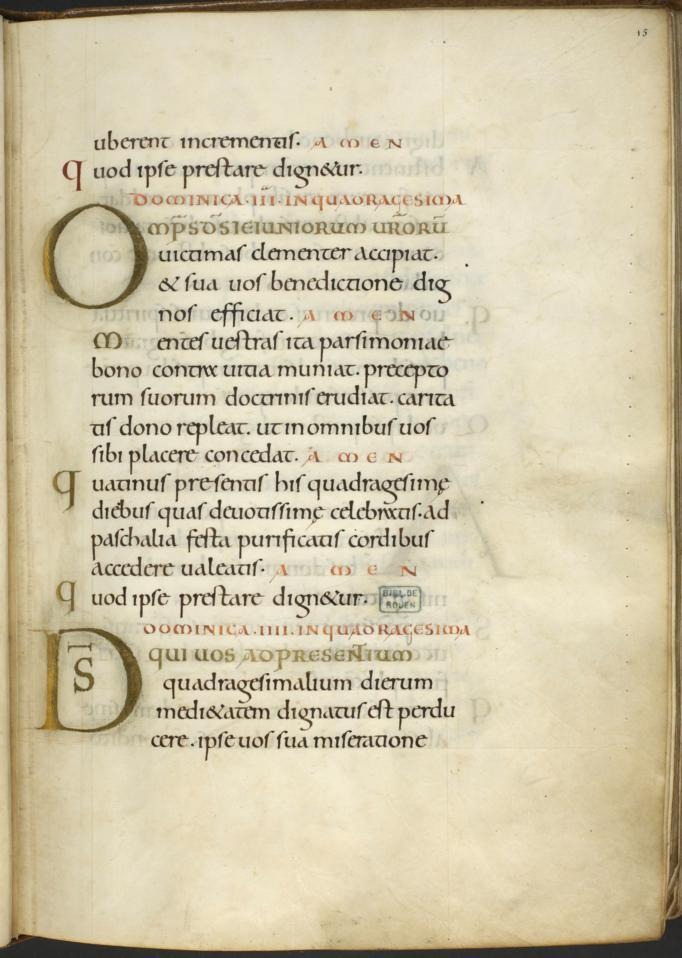 15
uberent incrementis. AMEN
quod ipse prestare dign&ur.
DOMINICA·III·IN QUADRAGESIMA
OMPS DS IEIUNIORUM URORU
uictimas clementer accipiat.
& sua uos benedictione dig
nos efficiat. AMEN
Mentes uestras ita parsimoniae
bono contra uitia muniat. precepto
rum suorum doctrinis erudiat. carita
tis dono repleat. ut in omnibus uos
sibi placere concedat. AMEN
quatinus presentis his quadragesimę
diebus quas deuotissimę celebratis. ad
paschalia festa purificatis cordibus
accedere ualeatis. AMEN
quod ipse prestare dign&ur. BIBL. DE ROUEN
DOMINICA·IIII·IN QUADRAGESIMA
DS QUI UOS AD PRESENTIUM
quadragesimalium dierum
medi&atem dignatus est perdu
cere. ipse uos sua miseratione